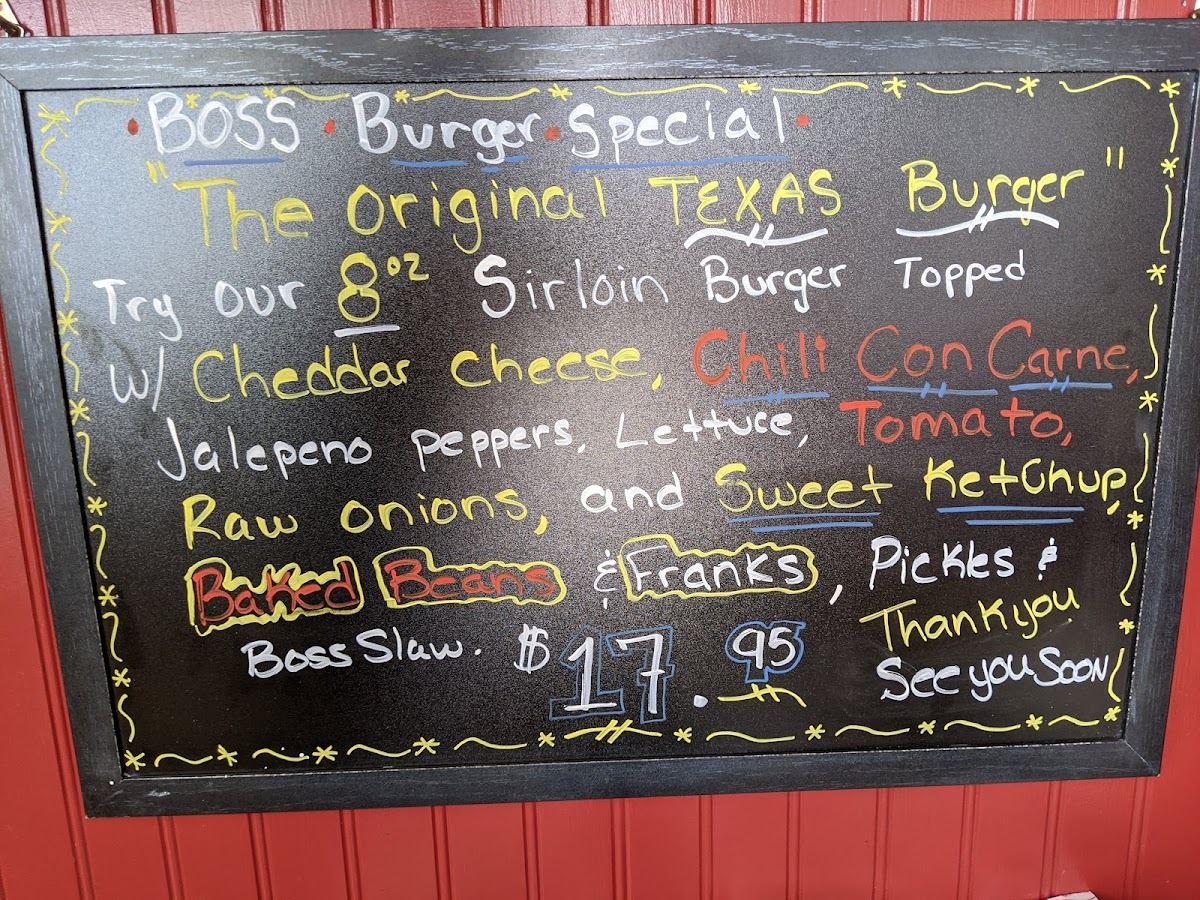 • BOSS • Burger • Special •
"The Original TEXAS Burger"
Try our 8oz Sirloin Burger Topped
w/ Cheddar cheese, Chili Con Carne,
Jalepeno peppers, Lettuce, Tomato,
Raw onions, and Sweet Ketchup,
Baked Beans & Franks, Pickles &
Boss Slaw. $17.95
Thank you
See you Soon